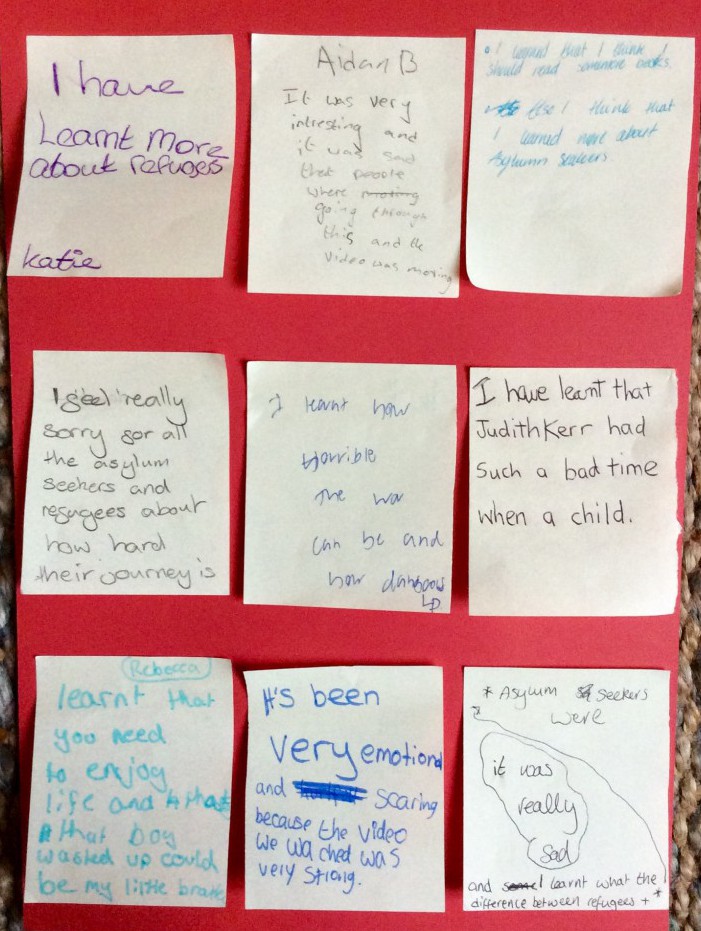 I have
Learnt More
about refuges
Katie
Aidan B
It was very
intresting and
it was sad
that people
where moving
going through
this and the
video was moving
I learnt that I think I
should read books.
Else I think that
I learned more about
Asylumn seekers
I feel really
sorry for all
the asylum
seekers and
refugees about
how hard
their journey is
I learnt how
horrible
the wa
can be and
how
LP
I have learnt that
Judith Kerr had
Such a bad time
when a child.
Rebecca
learnt that
you need
to enjoy
life and that
that boy
washed up could
be my little
It's been
very emotional
and scaring
because the video
we wa ched was
very strong.
* Asylum seekers
were
it was
really
sad
and I learnt what the
difference between refugees + *